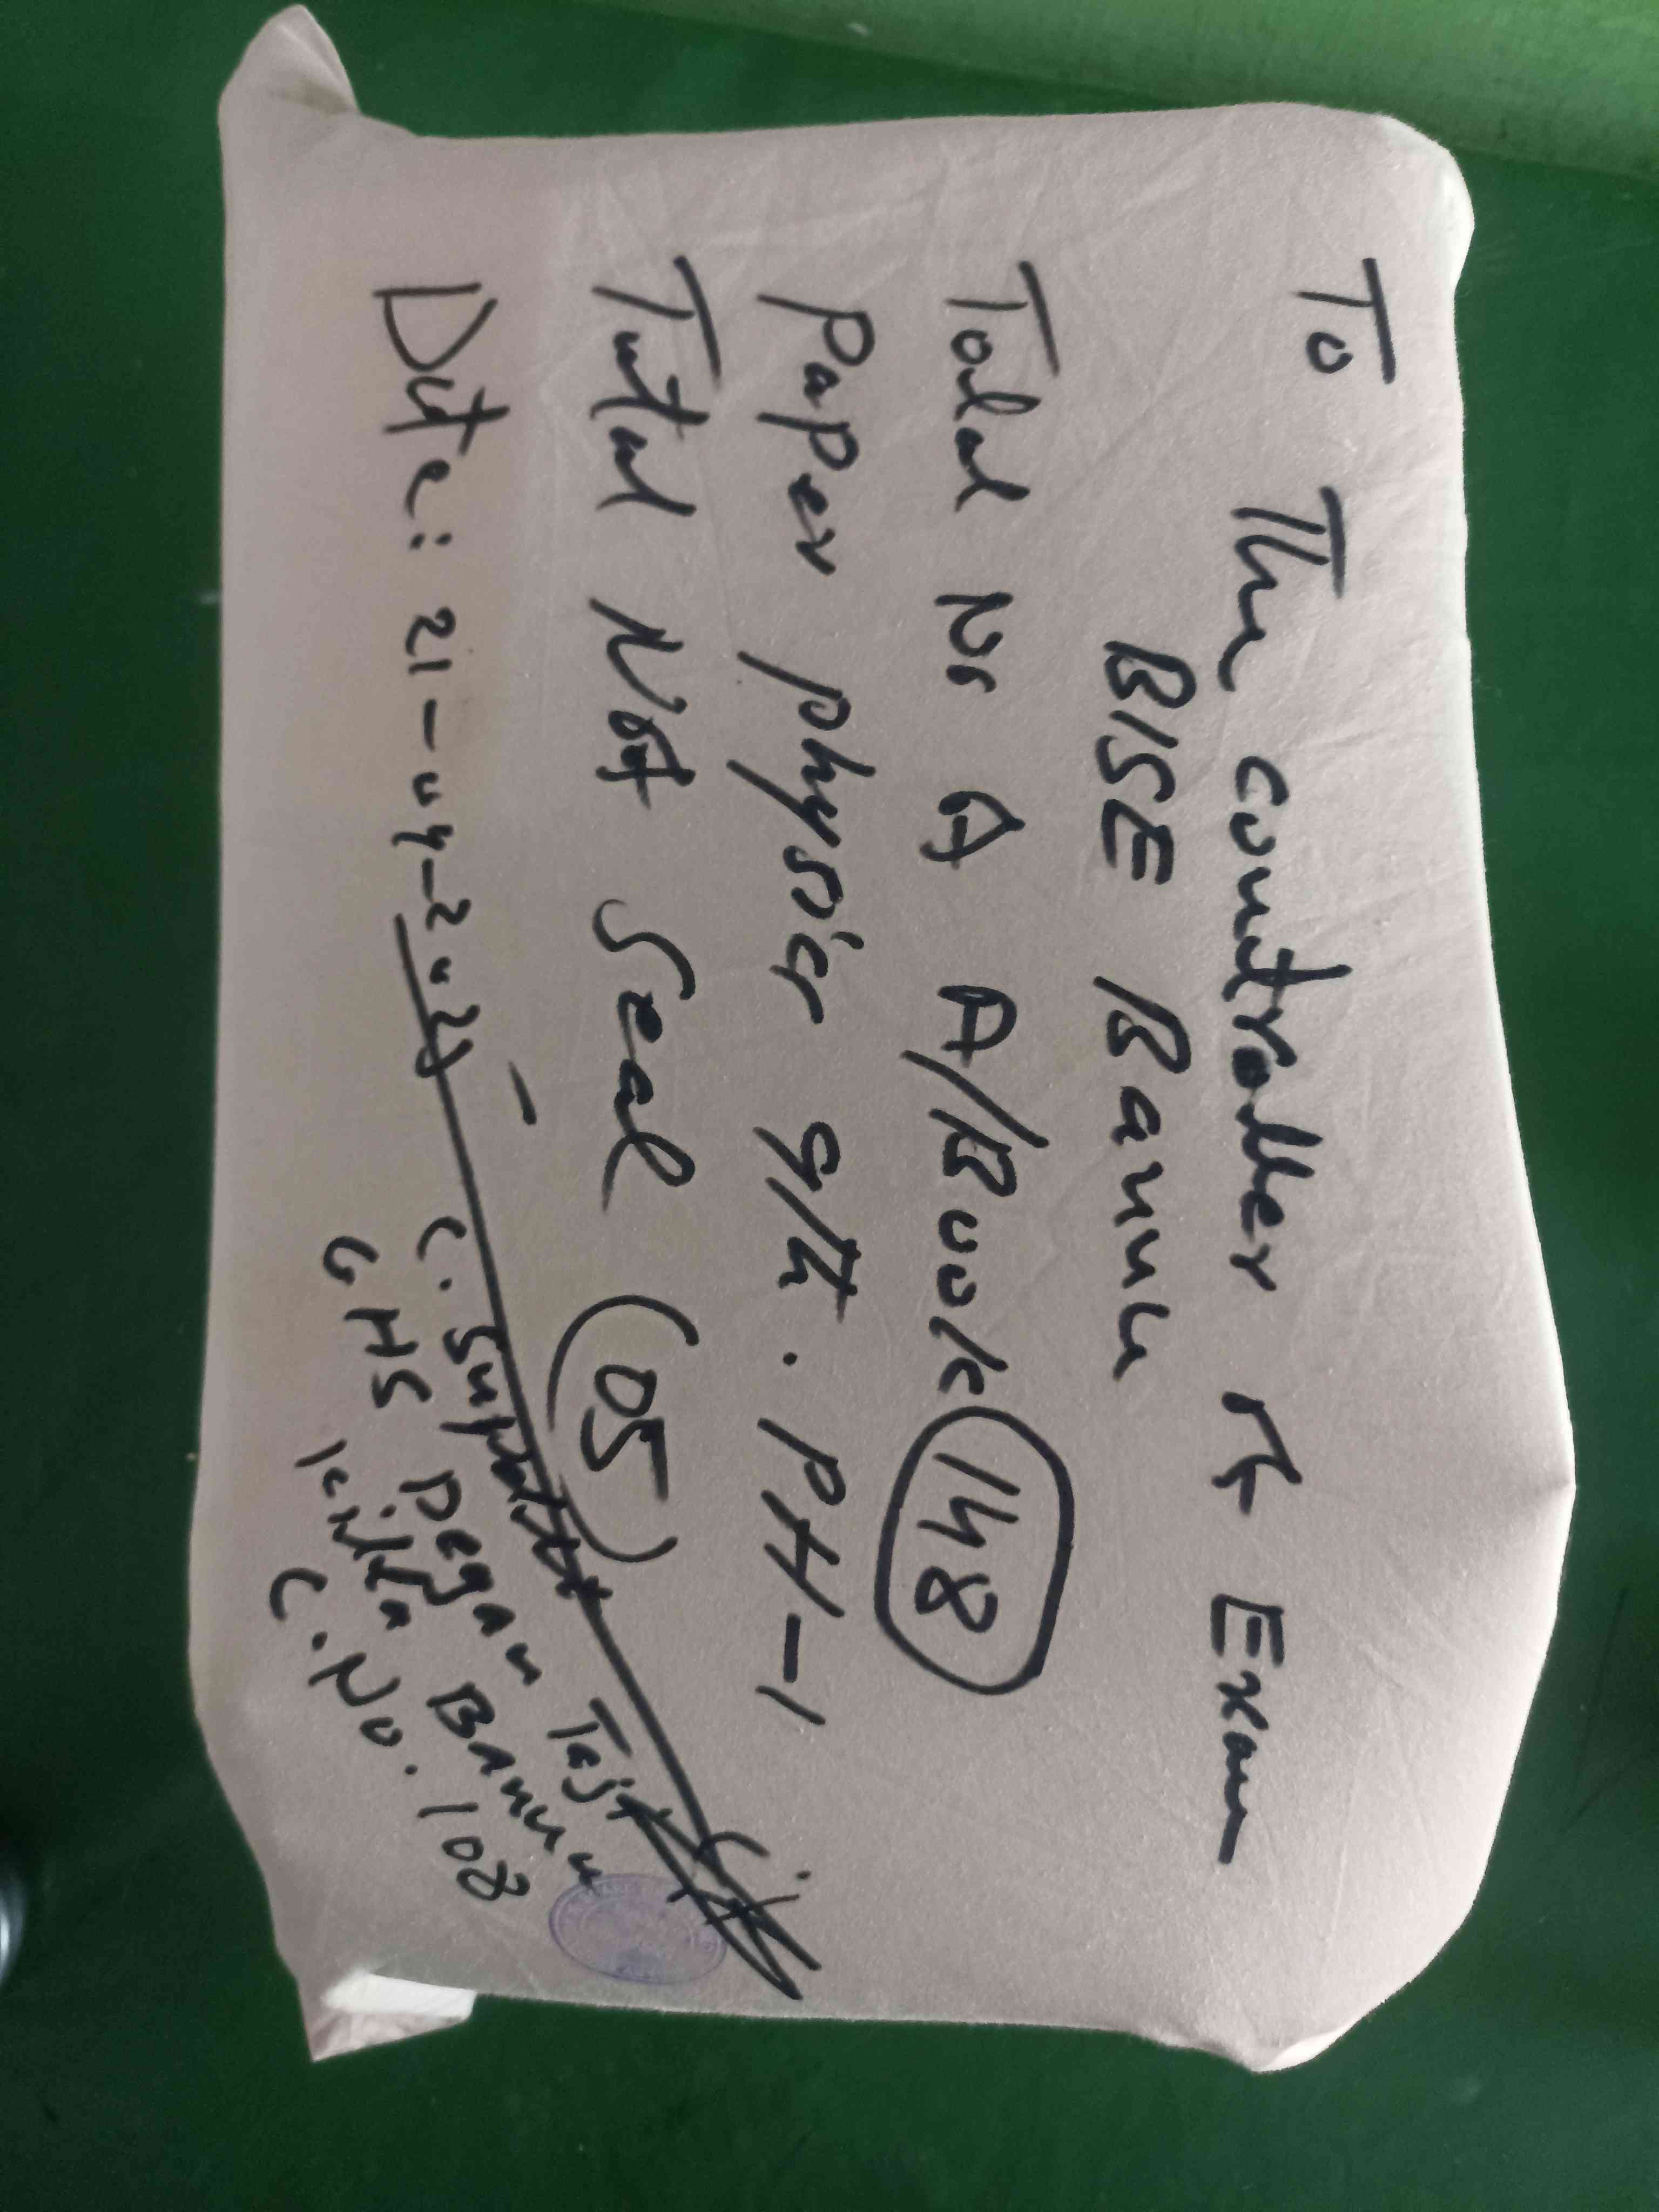 To The controller of Exam
BISE Bannu
Total No of A/Book 148
Paper physics 9/th . PH-1
Total No of Seal (05)
Date: 21-04-2025
C. Supdtt:
GHS Degan Taji
Killa Bannu
C.No. 108